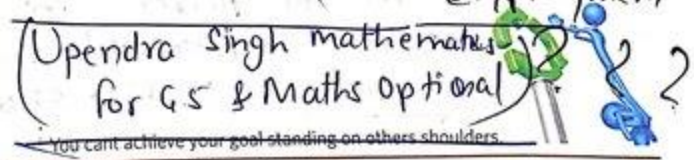 (Upendra Singh mathematics
for GS & Maths Optional) ? ? ?
You cant achieve your goal standing on others shoulders.